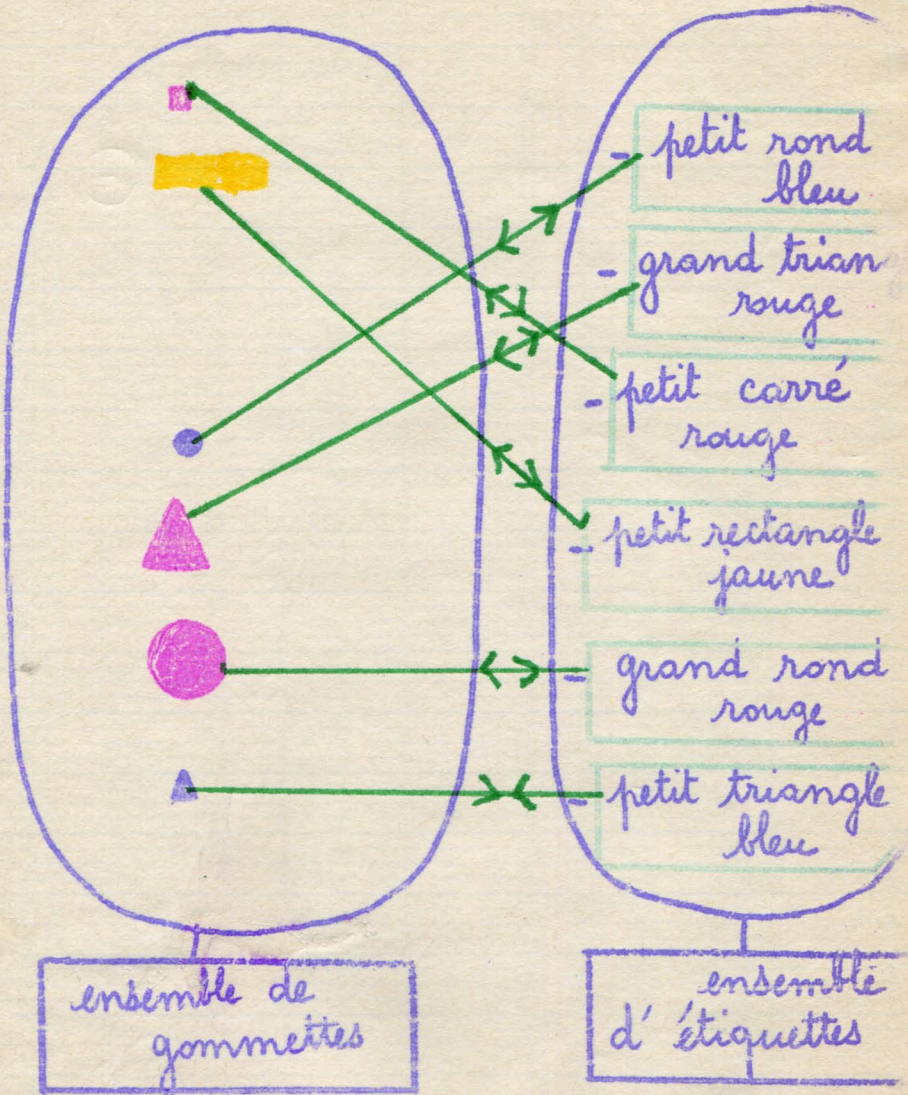 - petit rond
bleu
- grand trian
rouge
- petit carré
rouge
- petit rectangle
jaune
- grand rond
rouge
- petit triangle
bleu
ensemble de
gommettes
ensemble
d'étiquettes